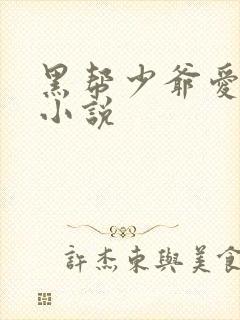 黑帮少爷爱
小説
許杰東與美食